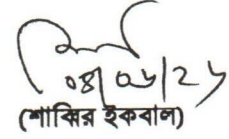 ০৪/০৬/২৬
(শাব্বির ইকবাল)